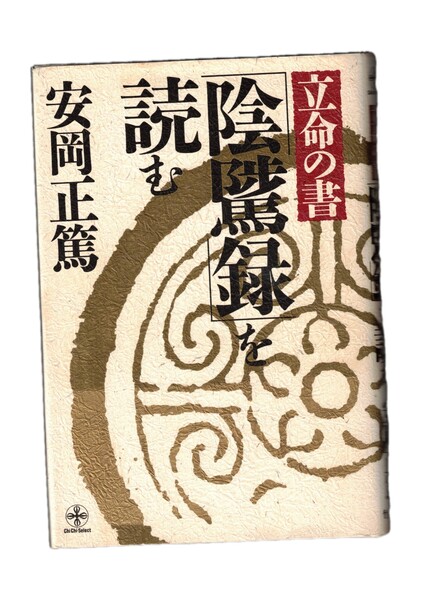 立命の書
「陰騭録」を
読む
安岡正篤
Chi Chi-Select